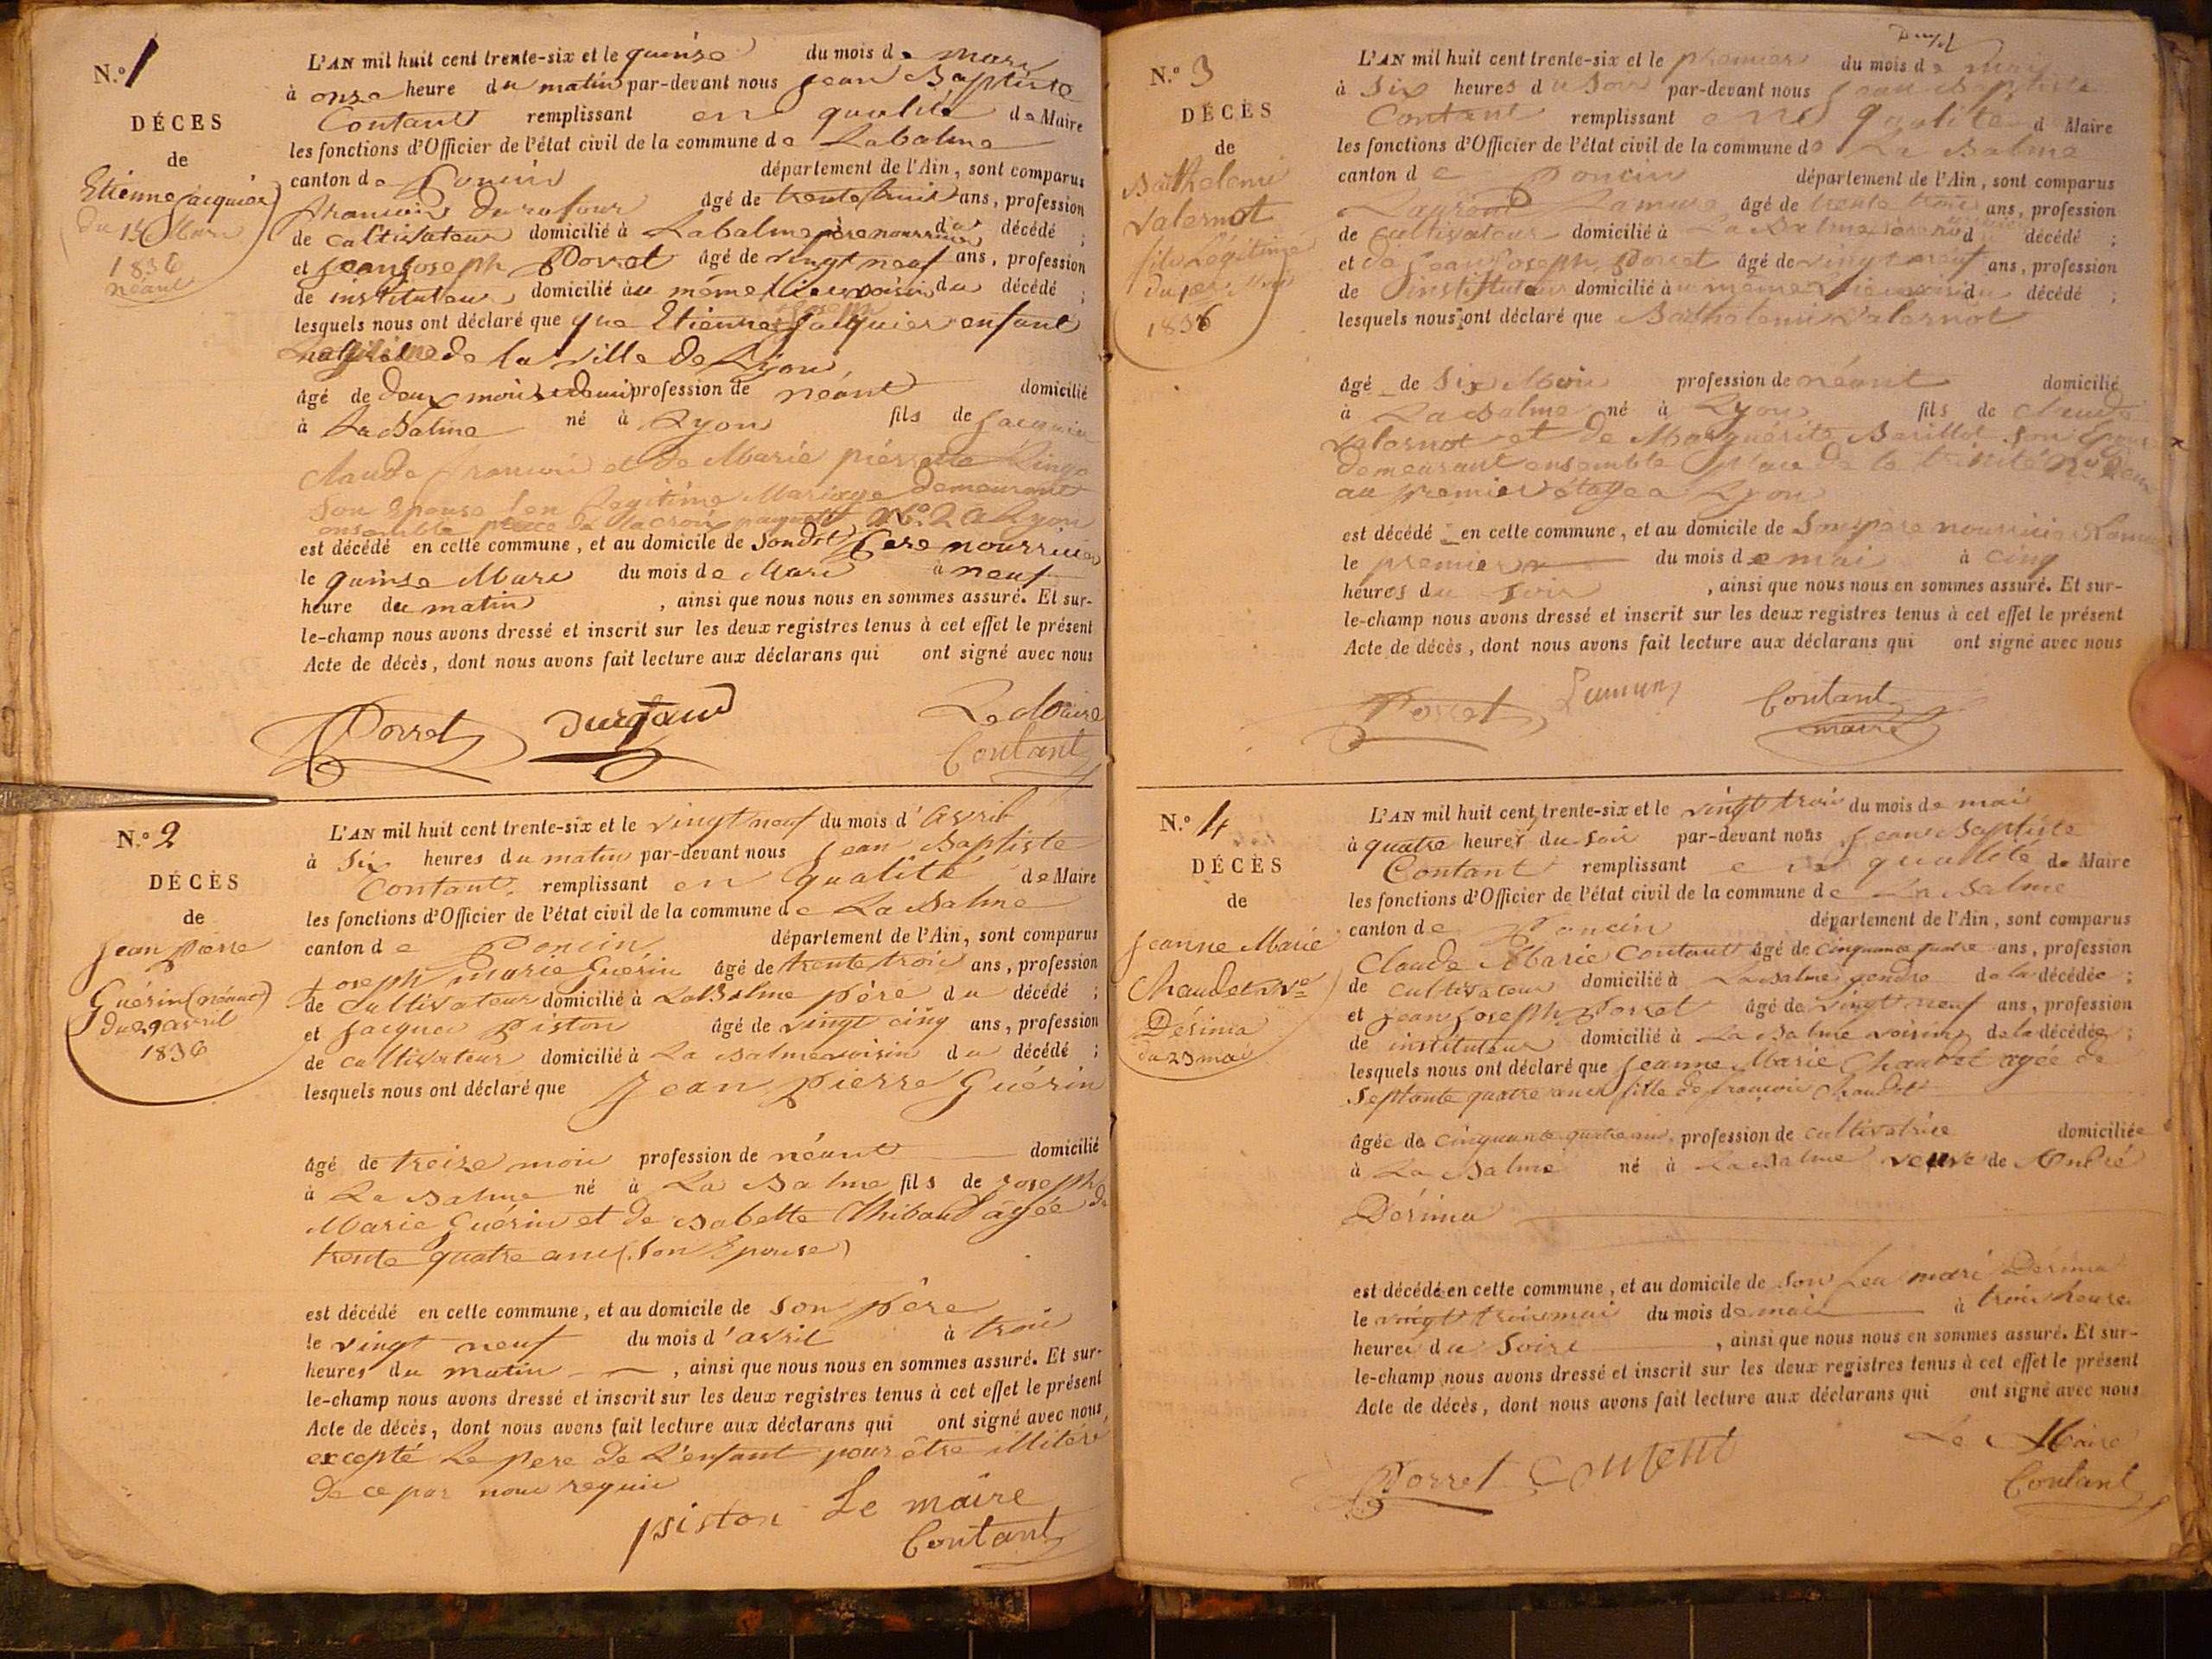 N.° 1
DÉCES
de
Etienne Jacquier
du 15 Mars
1836
néant
L'AN mil huit cent trente-six et le quinse du mois de mars
à onse heure du matin par-devant nous jean Baptiste
Contant remplissant en qualité de Maire
les fonctions d'Officier de l'état civil de la commune de Labalme
canton de Poncin département de l'Ain, sont comparus
francois âgé de trente huit ans, profession
de cultivateur domicilié à Labalme père nourricier du décédé ;
et jean joseph Porret âgé de vingt neuf ans, profession
de instituteur domicilié au même lieu voisin du décédé ;
lesquels nous ont déclaré que que Etienne joseph jacquier enfant
de la ville de Lyon
âgé de deux mois et demi profession de néant domicilié
à La Balme né à Lyon fils de jacquier
claude francois et de Marie pierrette
son Epouse en Legitime Mariage demeurant
ensemble place de la croix paquet N°. 2 a Lyon
est décédé en cette commune, et au domicile de Sondit Pere nourricier
le quinse Mars du mois de Mars à neuf
heure du matin , ainsi que nous nous en sommes assuré. Et sur-
le-champ nous avons dressé et inscrit sur les deux registres tenus à cet effet le présent
Acte de décès, dont nous avons fait lecture aux déclarans qui ont signé avec nous
Porret Le Maire
Contant
N.° 2
DÉCÈS
de
Jean Pierre
Guérin (néant)
du 29 avril
1836
L'AN mil huit cent trente-six et le vingt neuf du mois d'avril
à Six heures du matin par-devant nous Jean Baptiste
Contant remplissant en qualité de Maire
les fonctions d'Officier de l'état civil de la commune de La Balme
canton de Poncin département de l'Ain, sont comparus
Joseph marie Guérin âgé de trente trois ans, profession
de Cultivateur domicilié à La Balme père du décédé ;
et Jacques Piston âgé de vingt cinq ans, profession
de cultivateur domicilié à La Balme voisin du décédé ;
lesquels nous ont déclaré que Jean pierre Guérin
âgé de treize mois profession de néant domicilié
à La Balme né à La Balme fils de Joseph
Marie Guérin et de isabette Thibaud agée de
trente quatre ans (son Epouse)
est décédé en cette commune, et au domicile de Son père
le vingt neuf du mois d'avril à trois
heures du matin , ainsi que nous nous en sommes assuré. Et sur-
le-champ nous avons dressé et inscrit sur les deux registres tenus à cet effet le présent
Acte de décès, dont nous avons fait lecture aux déclarans qui ont signé avec nous,
excepté Le pere de L'enfant pour être illitéré
de ce par nous requis
piston Le maire
Contant
N.° 3
DÉCÈS
de
Bathelemi
Valernot
fils Légitime
du 1er Mai
1836
L'AN mil huit cent trente-six et le premier du mois de mai
à Six heures du Soir par-devant nous Jean Baptiste
Contant remplissant en qualité d Maire
les fonctions d'Officier de l'état civil de la commune de La Balme
canton de Poncin département de l'Ain, sont comparus
Laurent Lamure âgé de trente trois ans, profession
de cultivateur domicilié à La Balme décédé ;
et de jean joseph Porret âgé de vingt neuf ans, profession
de instituteur domicilié au même lieu voisin du décédé ;
lesquels nous ont déclaré que Bathelemi Valernot
âgé de Six Mois profession de néant domicilié
à La Balme né à Lyon fils de Claude
Valernot et de Marguérite Barillot son Epouse
demeurant ensemble place de la trinité N° deux
au premier étage a Lyon
est décédé en cette commune, et au domicile de Son père nourricier Lamure
le premier du mois de mai à cinq
heures du soir , ainsi que nous nous en sommes assuré. Et sur-
le-champ nous avons dressé et inscrit sur les deux registres tenus à cet effet le présent
Acte de décès, dont nous avons fait lecture aux déclarans qui ont signé avec nous
Porret Lamure Contant
maire
N.° 4
DÉCÈS
de
Jeanne Marie
Chaudet Ve
Dérima
du 23 mai
L'AN mil huit cent trente-six et le vingt trois du mois de mai
à quatre heures du soir par-devant nous Jean Baptiste
Contant remplissant en qualité de Maire
les fonctions d'Officier de l'état civil de la commune de La Balme
canton de Poncin département de l'Ain, sont comparus
Claude Marie Contant âgé de cinquante quatre ans, profession
de cultivateur domicilié à La Balme gendre de la décédée ;
et jean Joseph Porret âgé de vingt neuf ans, profession
de instituteur domicilié à La Balme voisin de la décédée ;
lesquels nous ont déclaré que Jeanne Marie Chaudet agée de
Septante quatre ans fille de francois Chaudet
âgée de cinquante quatre ans, profession de cultivatrice domiciliée
à La Balme né à La Balme veuve de André
Dérima
est décédée en cette commune, et au domicile de Son feu mari Dérima
le vingt trois mai du mois de mai à trois heure
heures du Soire , ainsi que nous nous en sommes assuré. Et sur-
le-champ nous avons dressé et inscrit sur les deux registres tenus à cet effet le présent
Acte de décès, dont nous avons fait lecture aux déclarans qui ont signé avec nous
Porret Contant Le Maire
Contant